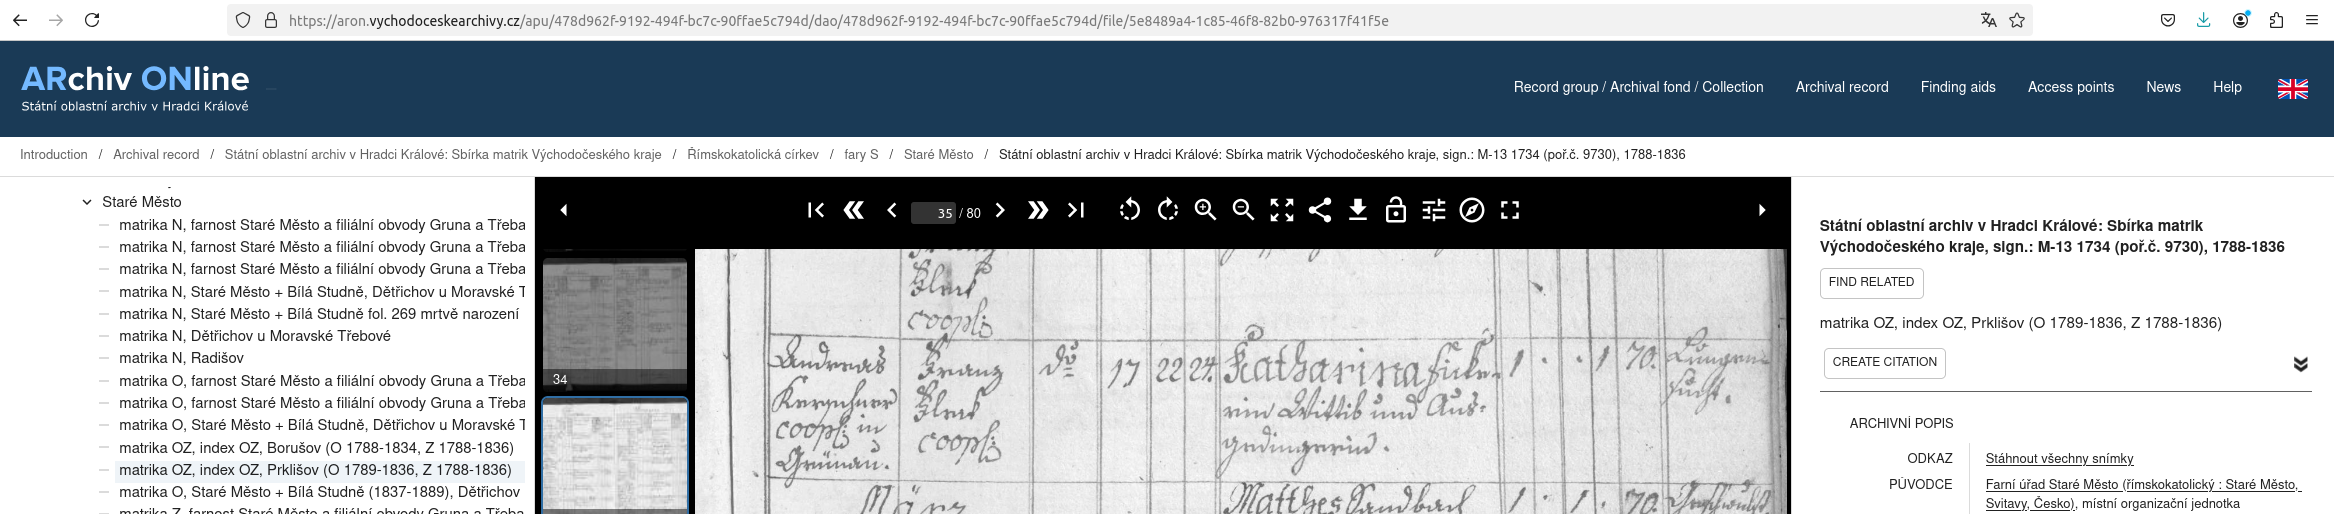 https://aron.vychodoceskearchivy.cz/apu/478d962f-9192-494f-bc7c-90ffae5c794d/dao/478d962f-9192-494f-bc7c-90ffae5c794d/file/5e8489a4-1c85-46f8-82b0-976317f41f5e
ARchiv ONline
Státní oblastní archiv v Hradci Králové
Record group / Archival fond / Collection
Archival record
Finding aids
Access points
News
Help
Introduction / Archival record / Státní oblastní archiv v Hradci Králové: Sbírka matrik Východočeského kraje / Římskokatolická církev / fary S / Staré Město / Státní oblastní archiv v Hradci Králové: Sbírka matrik Východočeského kraje, sign.: M-13 1734 (poř.č. 9730), 1788-1836
Staré Město
matrika N, farnost Staré Město a filiální obvody Gruna a Třeba
matrika N, farnost Staré Město a filiální obvody Gruna a Třeba
matrika N, farnost Staré Město a filiální obvody Gruna a Třeba
matrika N, Staré Město + Bílá Studně, Dětřichov u Moravské T
matrika N, Staré Město + Bílá Studně fol. 269 mrtvě narození
matrika N, Dětřichov u Moravské Třebové
matrika N, Radišov
matrika O, farnost Staré Město a filiální obvody Gruna a Třeba
matrika O, farnost Staré Město a filiální obvody Gruna a Třeba
matrika O, Staré Město + Bílá Studně, Dětřichov u Moravské T
matrika OZ, index OZ, Borušov (O 1788-1834, Z 1788-1836)
matrika OZ, index OZ, Prklišov (O 1789-1836, Z 1788-1836)
matrika O, Staré Město + Bílá Studně (1837-1889), Dětřichov
matrika Z, farnost Staré Město a filiální obvody Gruna a Třeba
35 / 80
34
coopl:
Andreas Franz do 17 22 24 Katharina 1 . . 1 70.
Kerschner
coopl: in coopl: rin Wittib und Aus-
Grünau. gedingerin.
März Matthes Sandbach 1 . 1 . 70.
Státní oblastní archiv v Hradci Králové: Sbírka matrik
Východočeského kraje, sign.: M-13 1734 (poř.č. 9730), 1788-1836
FIND RELATED
matrika OZ, index OZ, Prklišov (O 1789-1836, Z 1788-1836)
CREATE CITATION
ARCHIVNÍ POPIS
ODKAZ Stáhnout všechny snímky
PŮVODCE Farní úřad Staré Město (římskokatolický : Staré Město,
Svitavy, Česko), místní organizační jednotka